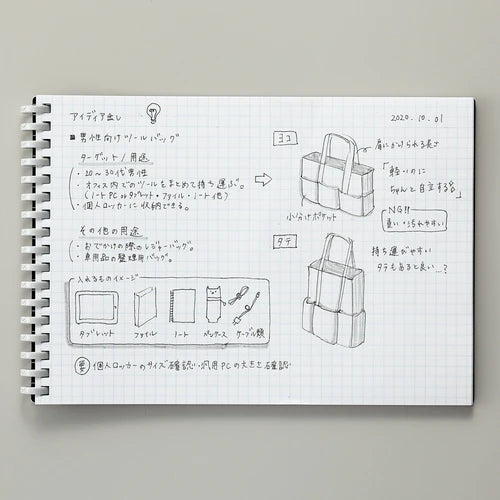 アイディア出し
2020.10.01
■ 男性向けツールバッグ
ターゲット/用途
・20〜30代男性
・オフィス内でのツールをまとめて持ち運ぶ。
(ノートPC orタブレット・ファイル・ノート他)
・個人ロッカーに収納できる。
その他の用途
・おでかけの際のレジャーバッグ。
・車用品の整理用バッグ。
入れるものイメージ
タブレット ファイル ノート ペンケース ケーブル類
要 個人ロッカーのサイズ確認・汎用PCの大きさ確認
ヨコ
肩にかけられる長さ
「軽いのに
ちゃんと自立する」
NG!!
重い・汚れやすい
小分けポケット
タテ
持ち運びやすい
タテもあると良い…?